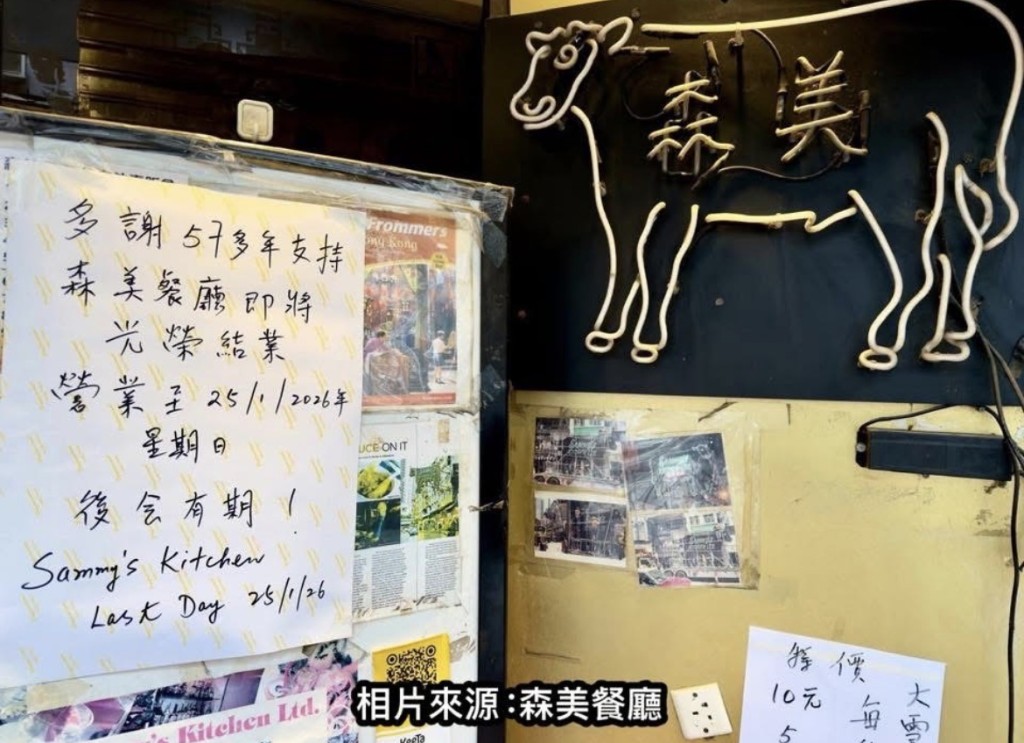 多謝57多年支持
森美餐廳即將
光榮結業
營業至25/1/2026年
星期日
後会有期!
Sammy's Kitchen
Last Day 25/1/26
森美
Frommer's
Hong Kong
UCE ON IT
's Kitchen Ltd.
KeeTa
價
10元
5
每
大
雪
相片來源:森美餐廳